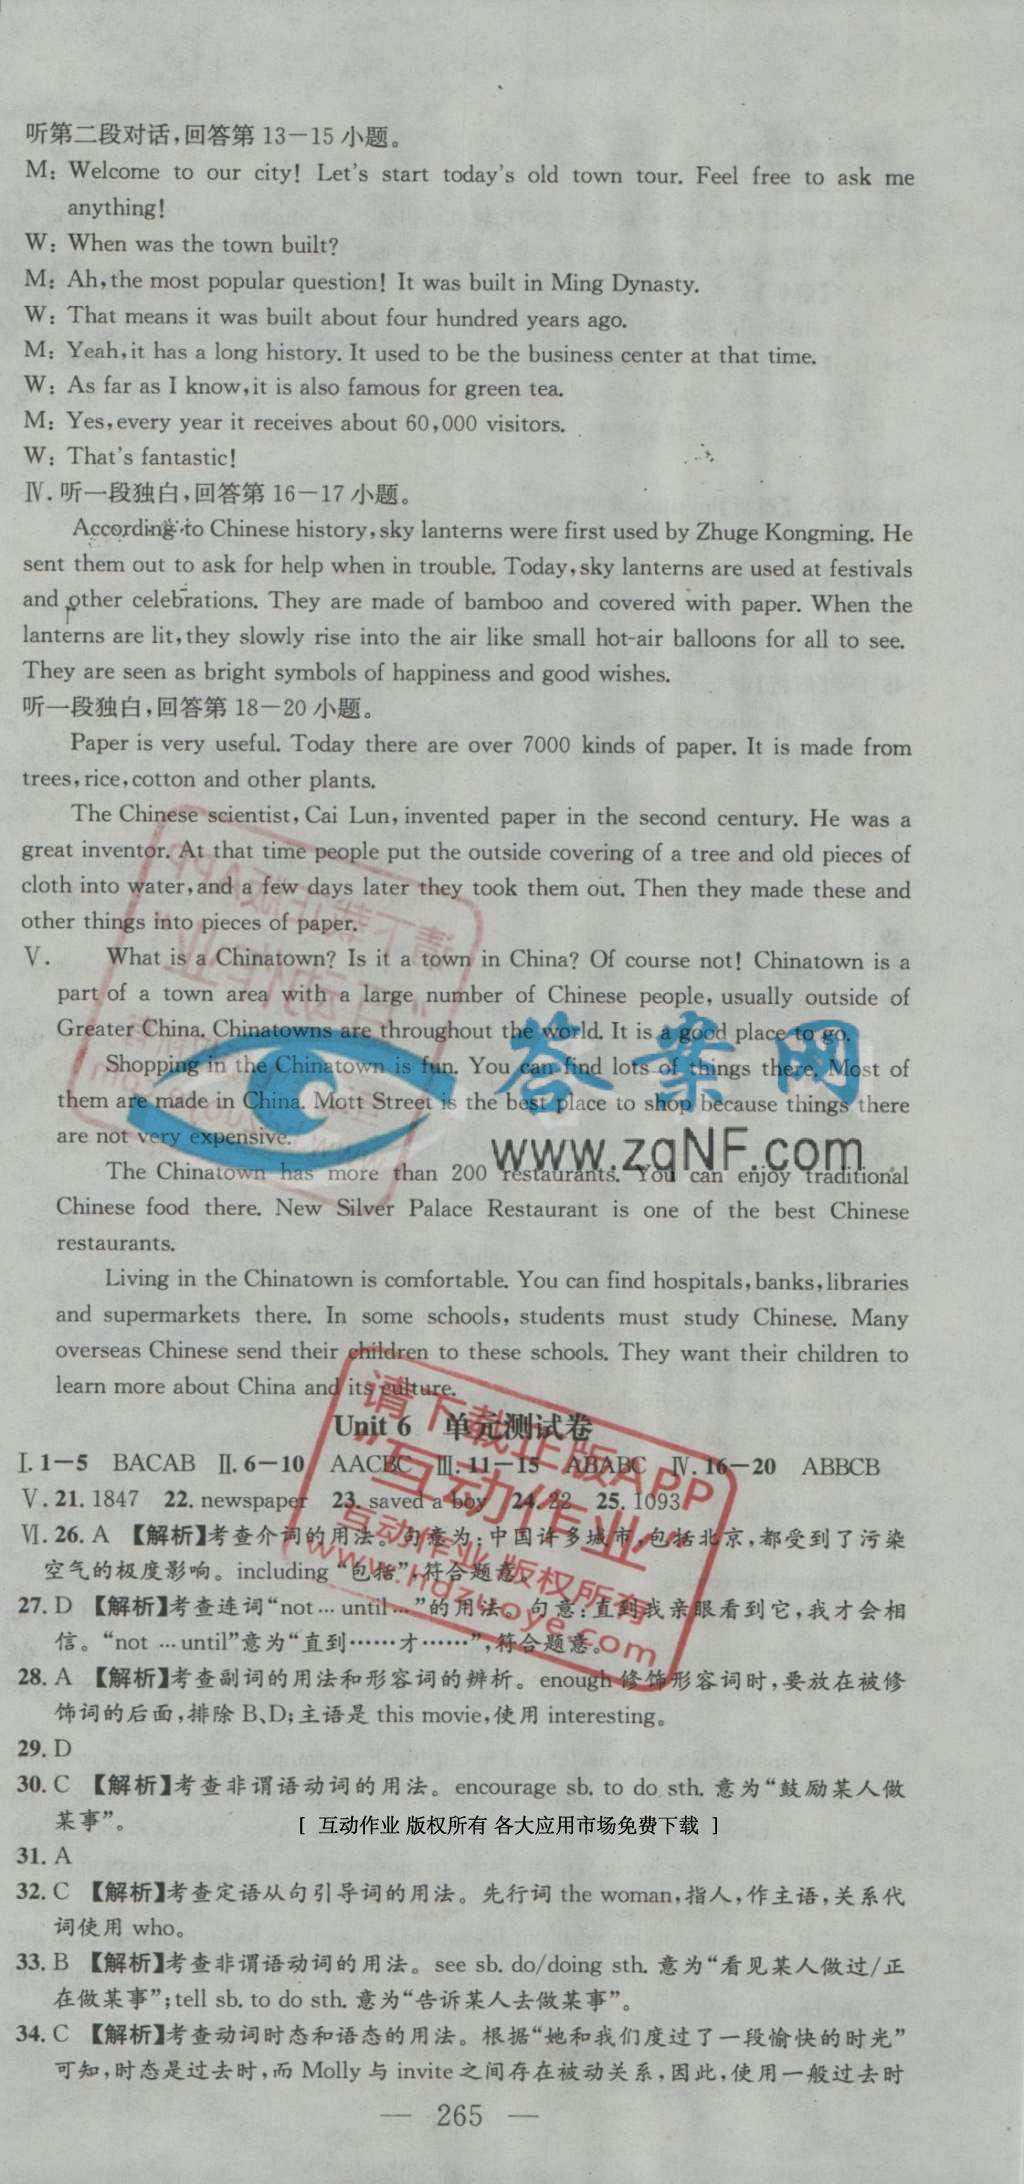 听第二段对话,回答第 13－15 小题。
M: Welcome to our city! Let's start today's old town tour. Feel free to ask me
anything!
W: When was the town built?
M: Ah, the most popular question! It was built in Ming Dynasty.
W: That means it was built about four hundred years ago.
M: Yeah, it has a long history. It used to be the business center at that time.
W: As far as I know, it is also famous for green tea.
M: Yes, every year it receives about 60,000 visitors.
W: That's fantastic!
Ⅳ. 听一段独白,回答第 16－17 小题。
According to Chinese history, sky lanterns were first used by Zhuge Kongming. He
sent them out to ask for help when in trouble. Today, sky lanterns are used at festivals
and other celebrations. They are made of bamboo and covered with paper. When the
lanterns are lit, they slowly rise into the air like small hot-air balloons for all to see.
They are seen as bright symbols of happiness and good wishes.
听一段独白,回答第 18－20 小题。
Paper is very useful. Today there are over 7000 kinds of paper. It is made from
trees, rice, cotton and other plants.
The Chinese scientist, Cai Lun, invented paper in the second century. He was a
great inventor. At that time people put the outside covering of a tree and old pieces of
cloth into water, and a few days later they took them out. Then they made these and
other things into pieces of paper.
Ⅴ. What is a Chinatown? Is it a town in China? Of course not! Chinatown is a
part of a town area with a large number of Chinese people, usually outside of
Greater China. Chinatowns are throughout the world. It is a good place to go.
Shopping in the Chinatown is fun. You can find lots of things there. Most of
them are made in China. Mott Street is the best place to shop because things there
are not very expensive.
答案网
www.zqNF.com
The Chinatown has more than 200 restaurants. You can enjoy traditional
Chinese food there. New Silver Palace Restaurant is one of the best Chinese
restaurants.
Living in the Chinatown is comfortable. You can find hospitals, banks, libraries
and supermarkets there. In some schools, students must study Chinese. Many
overseas Chinese send their children to these schools. They want their children to
learn more about China and its culture.
Unit 6 单元测试卷
Ⅰ. 1－5 BACAB Ⅱ. 6－10 AACBC Ⅲ. 11－15 ABABC Ⅳ. 16－20 ABBCB
Ⅴ. 21. 1847 22. newspaper 23. saved a boy 24. 22 25. 1093
Ⅵ. 26. A 【解析】考查介词的用法。句意为:中国许多城市,包括北京,都受到了污染
空气的极度影响。including “包括”,符合题意。
27. D 【解析】考查连词“not … until …”的用法。句意:直到我亲眼看到它,我才会相
信。“not … until”意为“直到……才……”,符合题意。
28. A 【解析】考查副词的用法和形容词的辨析。enough 修饰形容词时,要放在被修
饰词的后面,排除 B、D;主语是 this movie,使用 interesting。
29. D
30. C 【解析】考查非谓语动词的用法。encourage sb. to do sth. 意为“鼓励某人做
某事”。
[ 互动作业 版权所有 各大应用市场免费下载 ]
31. A
32. C 【解析】考查定语从句引导词的用法。先行词 the woman,指人,作主语,关系代
词使用 who。
33. B 【解析】考查非谓语动词的用法。see sb. do/doing sth. 意为“看见某人做过/正
在做某事”;tell sb. to do sth. 意为“告诉某人去做某事”。
34. C 【解析】考查动词时态和语态的用法。根据“她和我们度过了一段愉快的时光”
可知,时态是过去时,而 Molly 与 invite 之间存在被动关系,因此,使用一般过去时
请下载正版APP
“互动作业”
互动作业 版权所有
www.hdzuoye.com
— 265 —